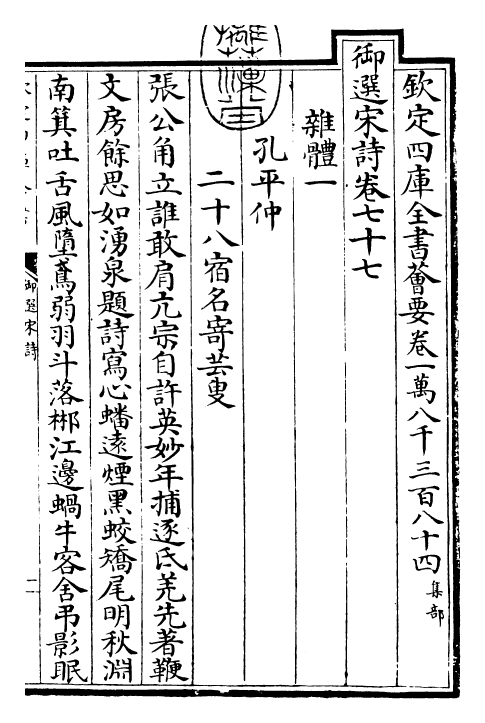 欽定四庫全書薈要卷一萬八千三百八十四 集部
御選宋詩卷七十七
雜體一
孔平仲
二十八宿名寄芸叟
張公角立誰敢肩亢宗自許英妙年捕逐氐羌先著鞭
文房餘思如湧泉題詩寫心蟠遠煙黑蛟矯尾明秋淵
南箕吐舌風墮鳶弱羽斗落郴江邊蝸牛客舍弔影眠
御選宋詩